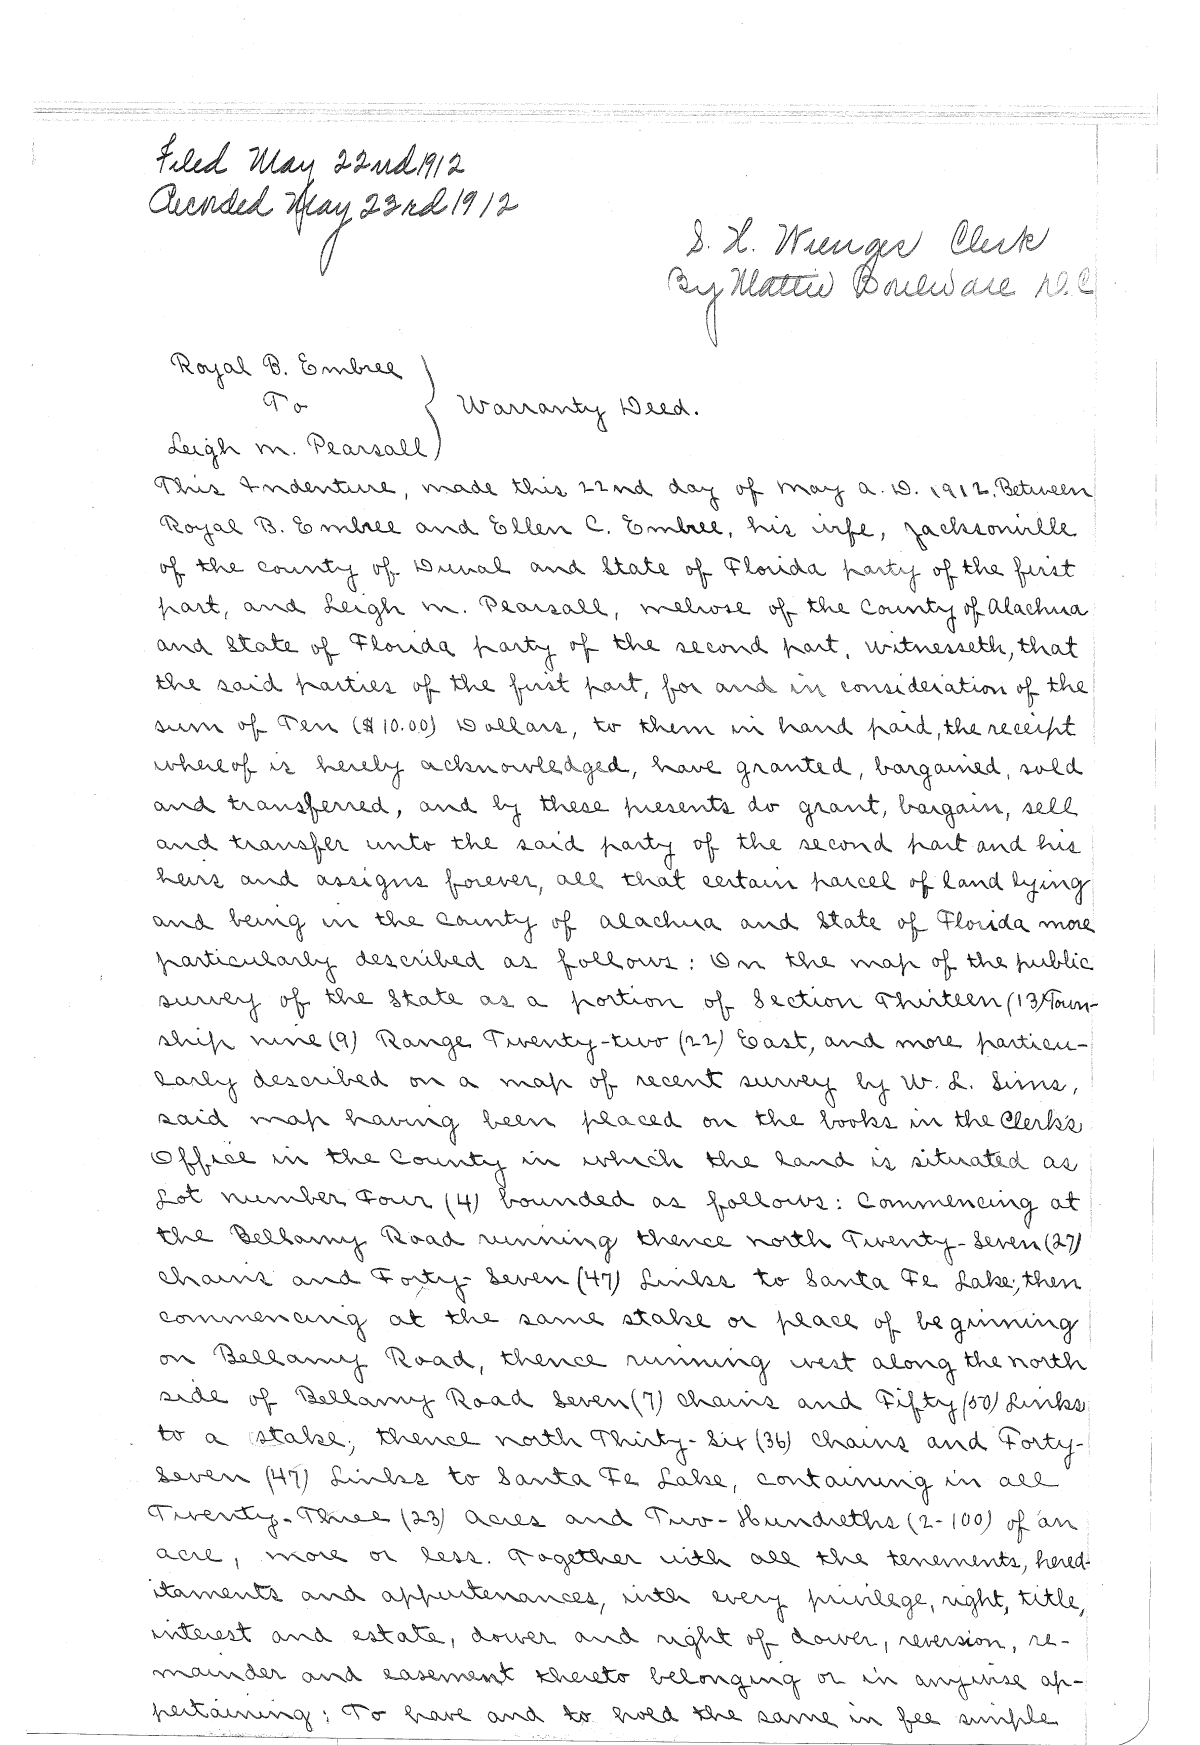 Filed May 22nd 1912
Recorded May 23rd 1912
S. H. Wienges Clerk
By Mattie Boulware D.C
Royal B. Embree
To
Warranty Deed.
Leigh M. Pearsall
This Indenture, made this 22nd day of May A. D. 1912. Between
Royal B. Embree and Ellen C. Embree, his wife, Jacksonville
of the county of Duval and State of Florida party of the first
part, and Leigh M. Pearsall, Melrose of the County of Alachua
and State of Florida party of the second part, witnesseth, that
the said parties of the first part, for and in consideration of the
sum of Ten ($10.00) Dollars, to them in hand paid, the receipt
whereof is hereby acknowledged, have granted, bargained, sold
and transferred, and by these presents do grant, bargain, sell
and transfer unto the said party of the second part and his
heirs and assigns forever, all that certain parcel of land lying
and being in the County of Alachua and State of Florida more
particularly described as follows: On the map of the public
survey of the State as a portion of Section Thirteen (13) Town-
ship nine (9) Range Twenty-two (22) East, and more particu-
larly described on a map of recent survey by W. L. Sims,
said map having been placed on the books in the Clerk's
Office in the County in which the land is situated as
Lot number Four (4) bounded as follows: Commencing at
the Bellamy Road running thence north Twenty-Seven (27)
chains and Forty-Seven (47) Links to Santa Fe Lake; then
commencing at the same stake or place of beginning
on Bellamy Road, thence running west along the north
side of Bellamy Road Seven (7) Chains and Fifty (50) Links
to a stake; thence north Thirty-Six (36) Chains and Forty-
Seven (47) Links to Santa Fe Lake, containing in all
Twenty-Three (23) Acres and Two-Hundreths (2-100) of an
acre, more or less. Together with all the tenements, hered-
itaments and appurtenances, with every privilege, right, title,
interest and estate, dower and right of dower, reversion, re-
mainder and easement thereto belonging or in anywise ap-
pertaining: To have and to hold the same in fee simple